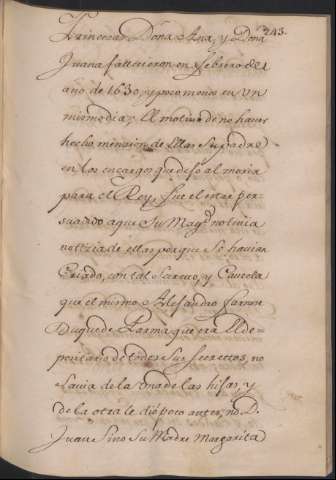 243.
Princesas Doña Ana, y Doña
Juana fallecieron en febrero del
año de 1630, y poco menos en un
mismo dia, y El motivo de no haver
hecho mension de Ellas Su padre
en los encargos que dejo al morir
para el Rey, fue el estar per
suadido a que Su Magᵈ no tenia
notizia de ellas porque Se havian
Criado, con tal Secreto, y Cautela
que el mismo Alejandro farnes
Duque de Parma que era El de=
positario de todos Sus Secretos, no
Savia de la una de las hijas, y
de la otra le dió poco antes, no D.
Juan Sino Su Madre Margarita